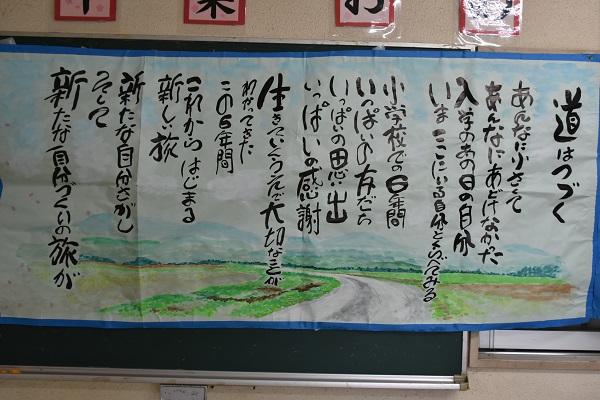 業お
道はつづく
あんなに小さくて
あんなにあどけなかった
入学のあの日の自分
いま ここにいる自分とくらべてみる
小学校での6年間
いっぱいの友だち
いっぱいの思い出
いっぱいの感謝
生きていくうえで大切なことが
わかってきた
この6年間
これから はじまる
新しい旅
新たな自分さがし
そして
新たな自分づくりの旅が